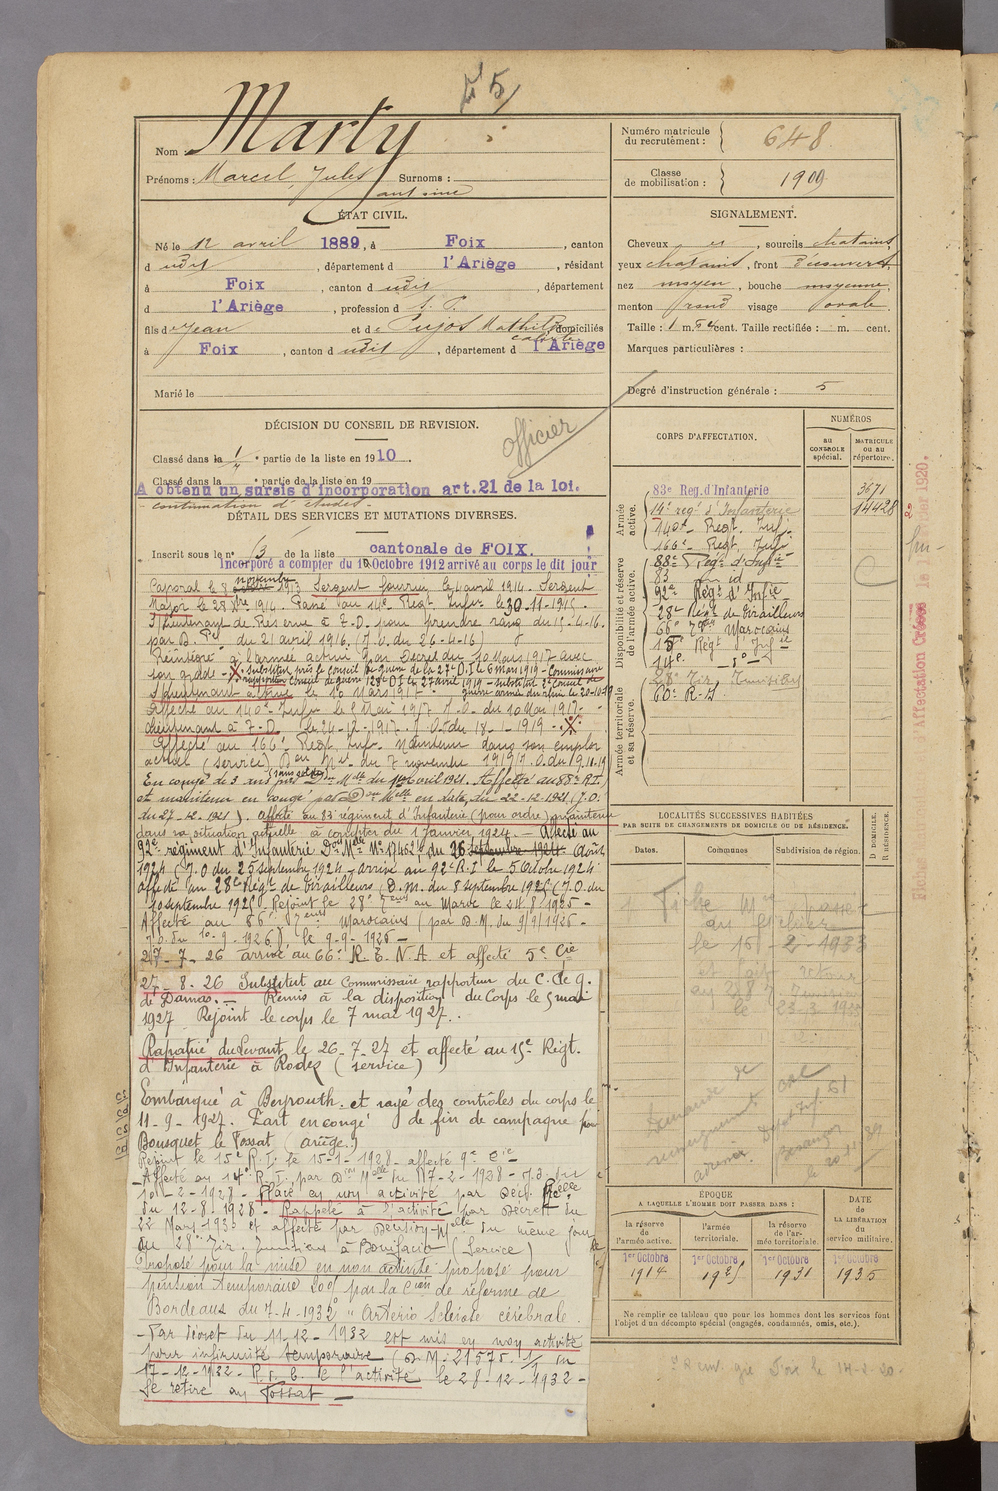 5
Nom : Marty
Prénoms : Marcel, Jules Surnoms :
antoine
ÉTAT CIVIL.
Né le 12 avril 1889, à Foix, canton
d udit, département d l'Ariège, résidant
à Foix, canton d udit, département
d l'Ariège, profession d S. P.
fils de Jean et de Pujos Mathilde domiciliés
à Foix, canton d udit, département d l'Ariège
Marié le
DÉCISION DU CONSEIL DE REVISION.
Classé dans la 1 partie de la liste en 1910.
Classé dans la partie de la liste en 19
A obtenu un sursis d'incorporation art. 21 de la loi.
continuation d'études
officier
DÉTAIL DES SERVICES ET MUTATIONS DIVERSES.
Inscrit sous le n° 13 de la liste cantonale de FOIX.
Incorporé a compter du 10 Octobre 1912 arrivé au corps le dit jour
Caporal le 8 novembre 1913 Sergent fourrier le 4 avril 1914. Sergent
Major le 28 1914. Passé au 14e Régt Infie le 30.11.1915.
S/lieutenant de Réserve à T.D. pour prendre rang du 15-4-16.
par D. du 21 avril 1916. (J.O. du 26-4-16)
Réintégré à l'armée active par Décret du 10 Mars 1917 avec
son grade - X substitut près le Conseil de guerre de la 27e D.I. le 6 mars 1919 - Commissaire
rapporteur Conseil de guerre 128e D.I. le 27 avril 1919 - substitut 2e Conseil de
S/lieutenant active le 10 Mars 1917 guerre armée du rhin le 20-10-19
Affecté au 140e Infie le 8 Mai 1917 J.O. du 10 Mai 1917.
Lieutenant à T.D. le 24-12-1917. J.O. du 18-1-1919 - X
Affecté au 166e Régt Infie Maintenu dans son emploi
actuel (service) Don Mlle du 7 novembre 1919 J.O. du 9.11.19
En congé de 3 ans (sans solde) par Don Mlle du 1er avril 1921. Affecté au 88e R.I.
et maintenu en congé par Don Mlle en date du 22-12-1921 (J.O.
du 27-12-1921). affecté au 83 régiment d'Infanterie (pour ordre) maintenu
dans sa situation actuelle à compter du 1 Janvier 1924. - Affecté au
92e régiment d'Infanterie Don Mlle N° 17462 du 26 septembre 1924 Août
1924 (J.O. du 25 septembre 1924 - arrivé au 92e R.I. le 5 Octobre 1924
affecté au 28e Régt de Tirailleurs (D.M. du 8 septembre 1925 (J.O. du
10 septembre 1925 Rejoint le 28e au Maroc le 24-9-1925 -
Affecté au 66e Marocains (par D.M. du 9/9/1926 -
J.O. du 10-9-1926) le 9-9-1926 -
27-7-26 arrivé au 66e R.T.N.A. et affecté 5e Cie
27-8-26 Substitut au Commissaire rapporteur du C. de g.
de Damas. - Remis à la disposition du Corps le 5 mai
1927 Rejoint le corps le 7 mai 1927.
Rapatrié du Levant le 26-7-27 et affecté au 15e Régt.
d'Infanterie à Rodez (service)
Embarqué à Beyrouth et rayé des contrôles du corps le
11-9-1927. Part en congé de fin de campagne pour
Bousquet le Fossat (ariège.)
Rejoint le 15e R.I. le 15-1-1928 - affecté 9e Cie
- Affecté au 14e R.I. par Don Mlle du 17-2-1928 - J.O. du
10-2-1928 - Placé en non activité par Déc. Plle
du 12-8-1928 - Rappelé à l'activité par Décret du
22 Mars 1930 et affecté par Décision Mlle du même jour
au 28e Tir. Tunisiens à Bonifacio (service)
Proposé pour la mise en non activité proposé pour
pension temporaire 20% par la Cion de réforme de
Bordeaux du 7-4-1932 "Artério Sclérose cérébrale.
- Par décret du 11-12-1932 est mis en non activité
pour infirmité temporaire (D.M. 21575. 1/1 du
17-12-1932 - R. d. c. de l'activité le 28-12-1932 -
Se retire au Fossat -
Numéro matricule du recrutement : 648
Classe de mobilisation : 1909
SIGNALEMENT.
Cheveux et, sourcils chatains,
yeux chatains, front découvert,
nez moyen, bouche moyenne,
menton rond visage ovale.
Taille : 1 m. cent. Taille rectifiée : m. cent.
Marques particulières :
Degré d'instruction générale : 5
CORPS D'AFFECTATION.
NUMÉROS
au CONTROLE spécial.
MATRICULE OU AU répertoire.
Armée active.
83e Reg. d'Infanterie 3671
14e régt d'Infanterie 14428
140e Regt. Inf.
166e Regt. Inf.
Disponibilité et réserve de l'armée active.
88e Régt d'Infie
83 id
92e Régt d'Infie
28e Régt de Tirailleurs
66e Marocains
15e Régt Infie
14e - do -
Armée territoriale et sa réserve.
28e Tir. Tunisiens
60e R.I.
LOCALITÉS SUCCESSIVES HABITÉES
PAR SUITE DE CHANGEMENTS DE DOMICILE OU DE RÉSIDENCE.
Dates. Communes Subdivision de région. D DOMICILE. R RÉSIDENCE.
Fiche passée
au fichier
le 15-2-1933
En fait retour
au 28e Tunisiens
le 23-3-1933
Demande de
renseignements
adressée
Dépôt Inf. 61
Besançon
ÉPOQUE
A LAQUELLE L'HOMME DOIT PASSER DANS :
DATE de LA LIBÉRATION du service militaire.
la réserve de l'armée active.
l'armée territoriale.
la réserve de l'armée territoriale.
1er Octobre 1914
1er Octobre 1925
1er Octobre 1931
1er Octobre 1935
Ne remplir ce tableau que pour les hommes dont les services font
l'objet d'un décompte spécial (engagés, condamnés, omis, etc.).